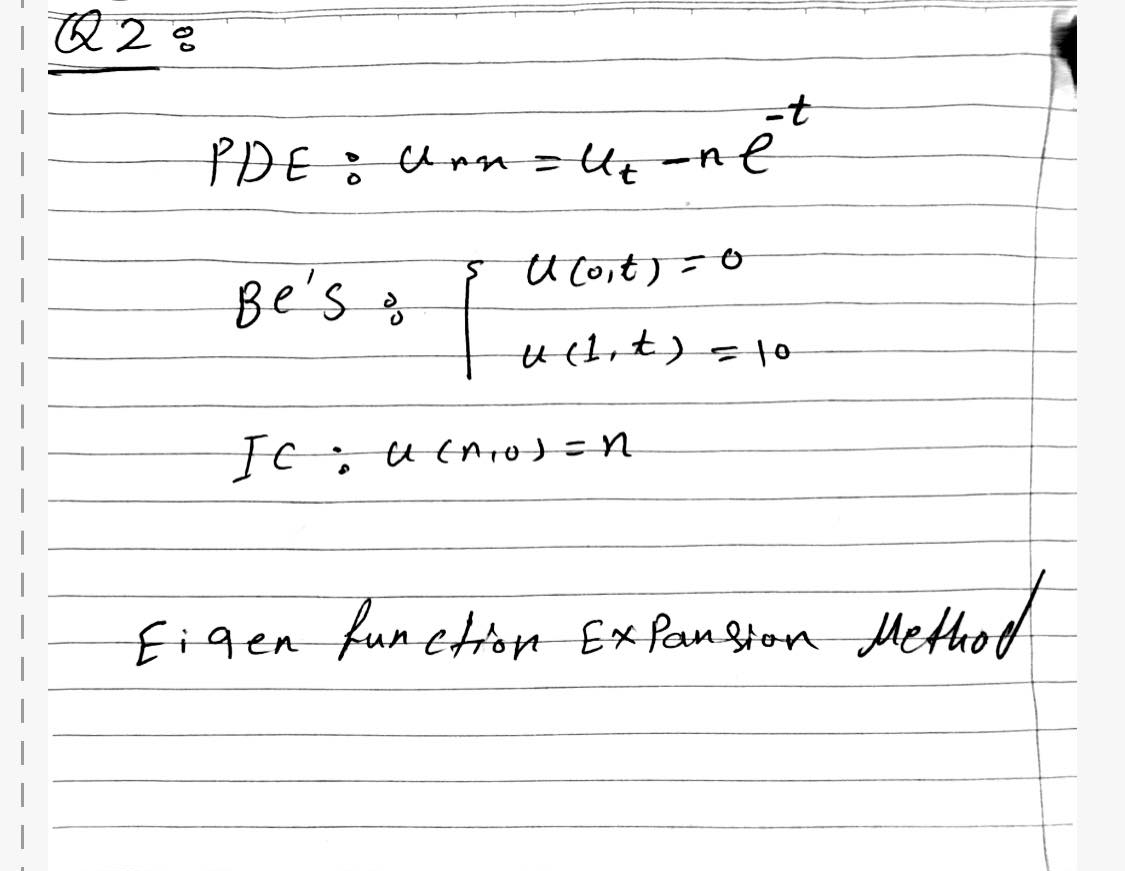 Q2:
PDE: unn = ut - ne^-t
Be's: { u(0,t) = 0
u(1,t) = 10
IC: u(n,0) = n
Eigen function Expansion Method